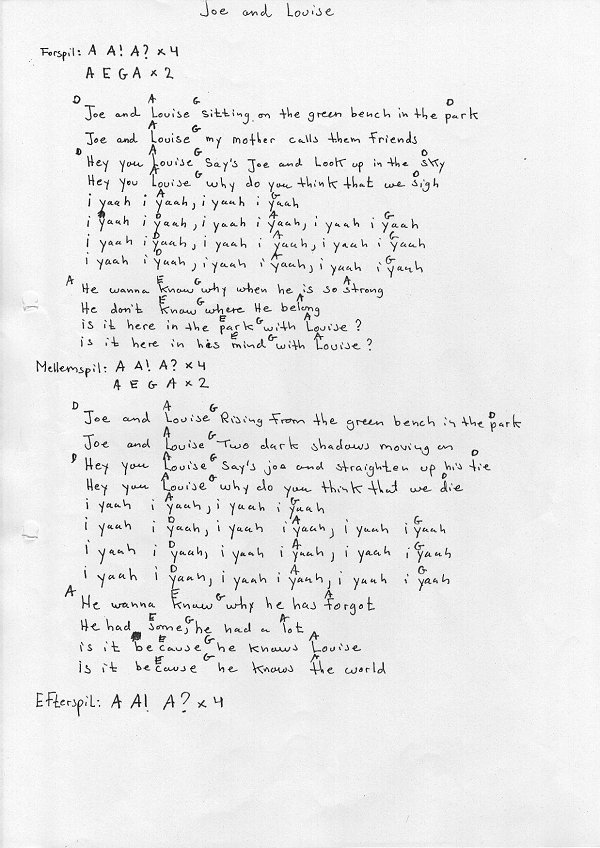 Joe and Louise
Forspil: A A! A? x 4
A E G A x 2
D A G D
Joe and Louise sitting on the green bench in the park
A G
Joe and Louise my mother calls them friends
D A G D
Hey you Louise Say's Joe and Look up in the sky
A G D
Hey you Louise why do you think that we sigh
A G
i yaah i yaah, i yaah i yaah
D A G
i yaah i yaah, i yaah i yaah, i yaah i yaah
D A G
i yaah i yaah, i yaah i yaah, i yaah i yaah
D A G
i yaah i yaah, i yaah i yaah, i yaah i yaah
A E G A
He wanna know why when he is so strong
E G A
He don't know where He belong
E G A
is it here in the park with Louise?
E G A
is it here in his mind with Louise?
Mellemspil: A A! A? x 4
A E G A x 2
D A G D
Joe and Louise Rising from the green bench in the park
A G
Joe and Louise Two dark shadows moving on
D A G D
Hey you Louise Say's joe and straighten up his tie
A G D
Hey you Louise why do you think that we die
A G
i yaah i yaah, i yaah i yaah
D A G
i yaah i yaah, i yaah i yaah, i yaah i yaah
D A G
i yaah i yaah, i yaah i yaah, i yaah i yaah
D A G
i yaah i yaah, i yaah i yaah, i yaah i yaah
A E G A
He wanna know why he has forgot
E G A
He had some, he had a lot
E G A
is it because he knows Louise
E G A
is it because he knows the world
Efterspil: A A! A? x 4